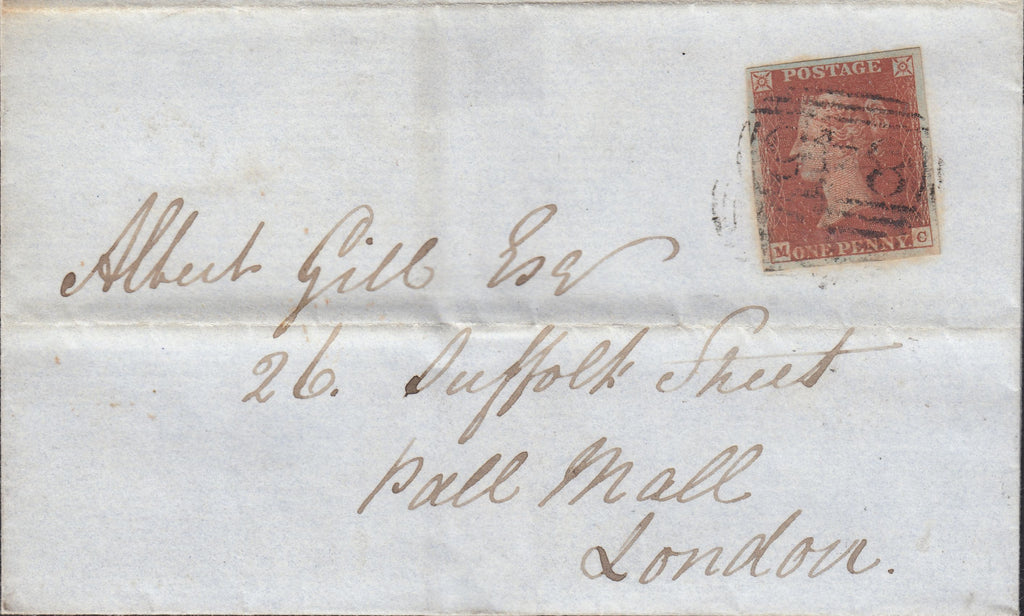 POSTAGE
M ONE PENNY C
Albert Gill Esq
26. Suffolk Street
Pall Mall
London.